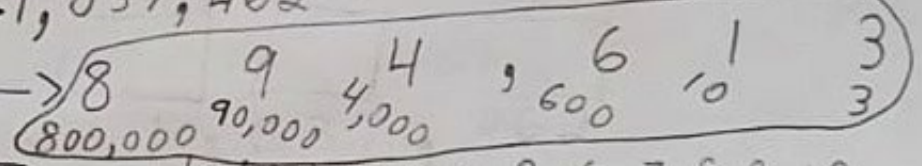 8 9 4 , 6 1 3
800,000 90,000 4,000 600 10 3